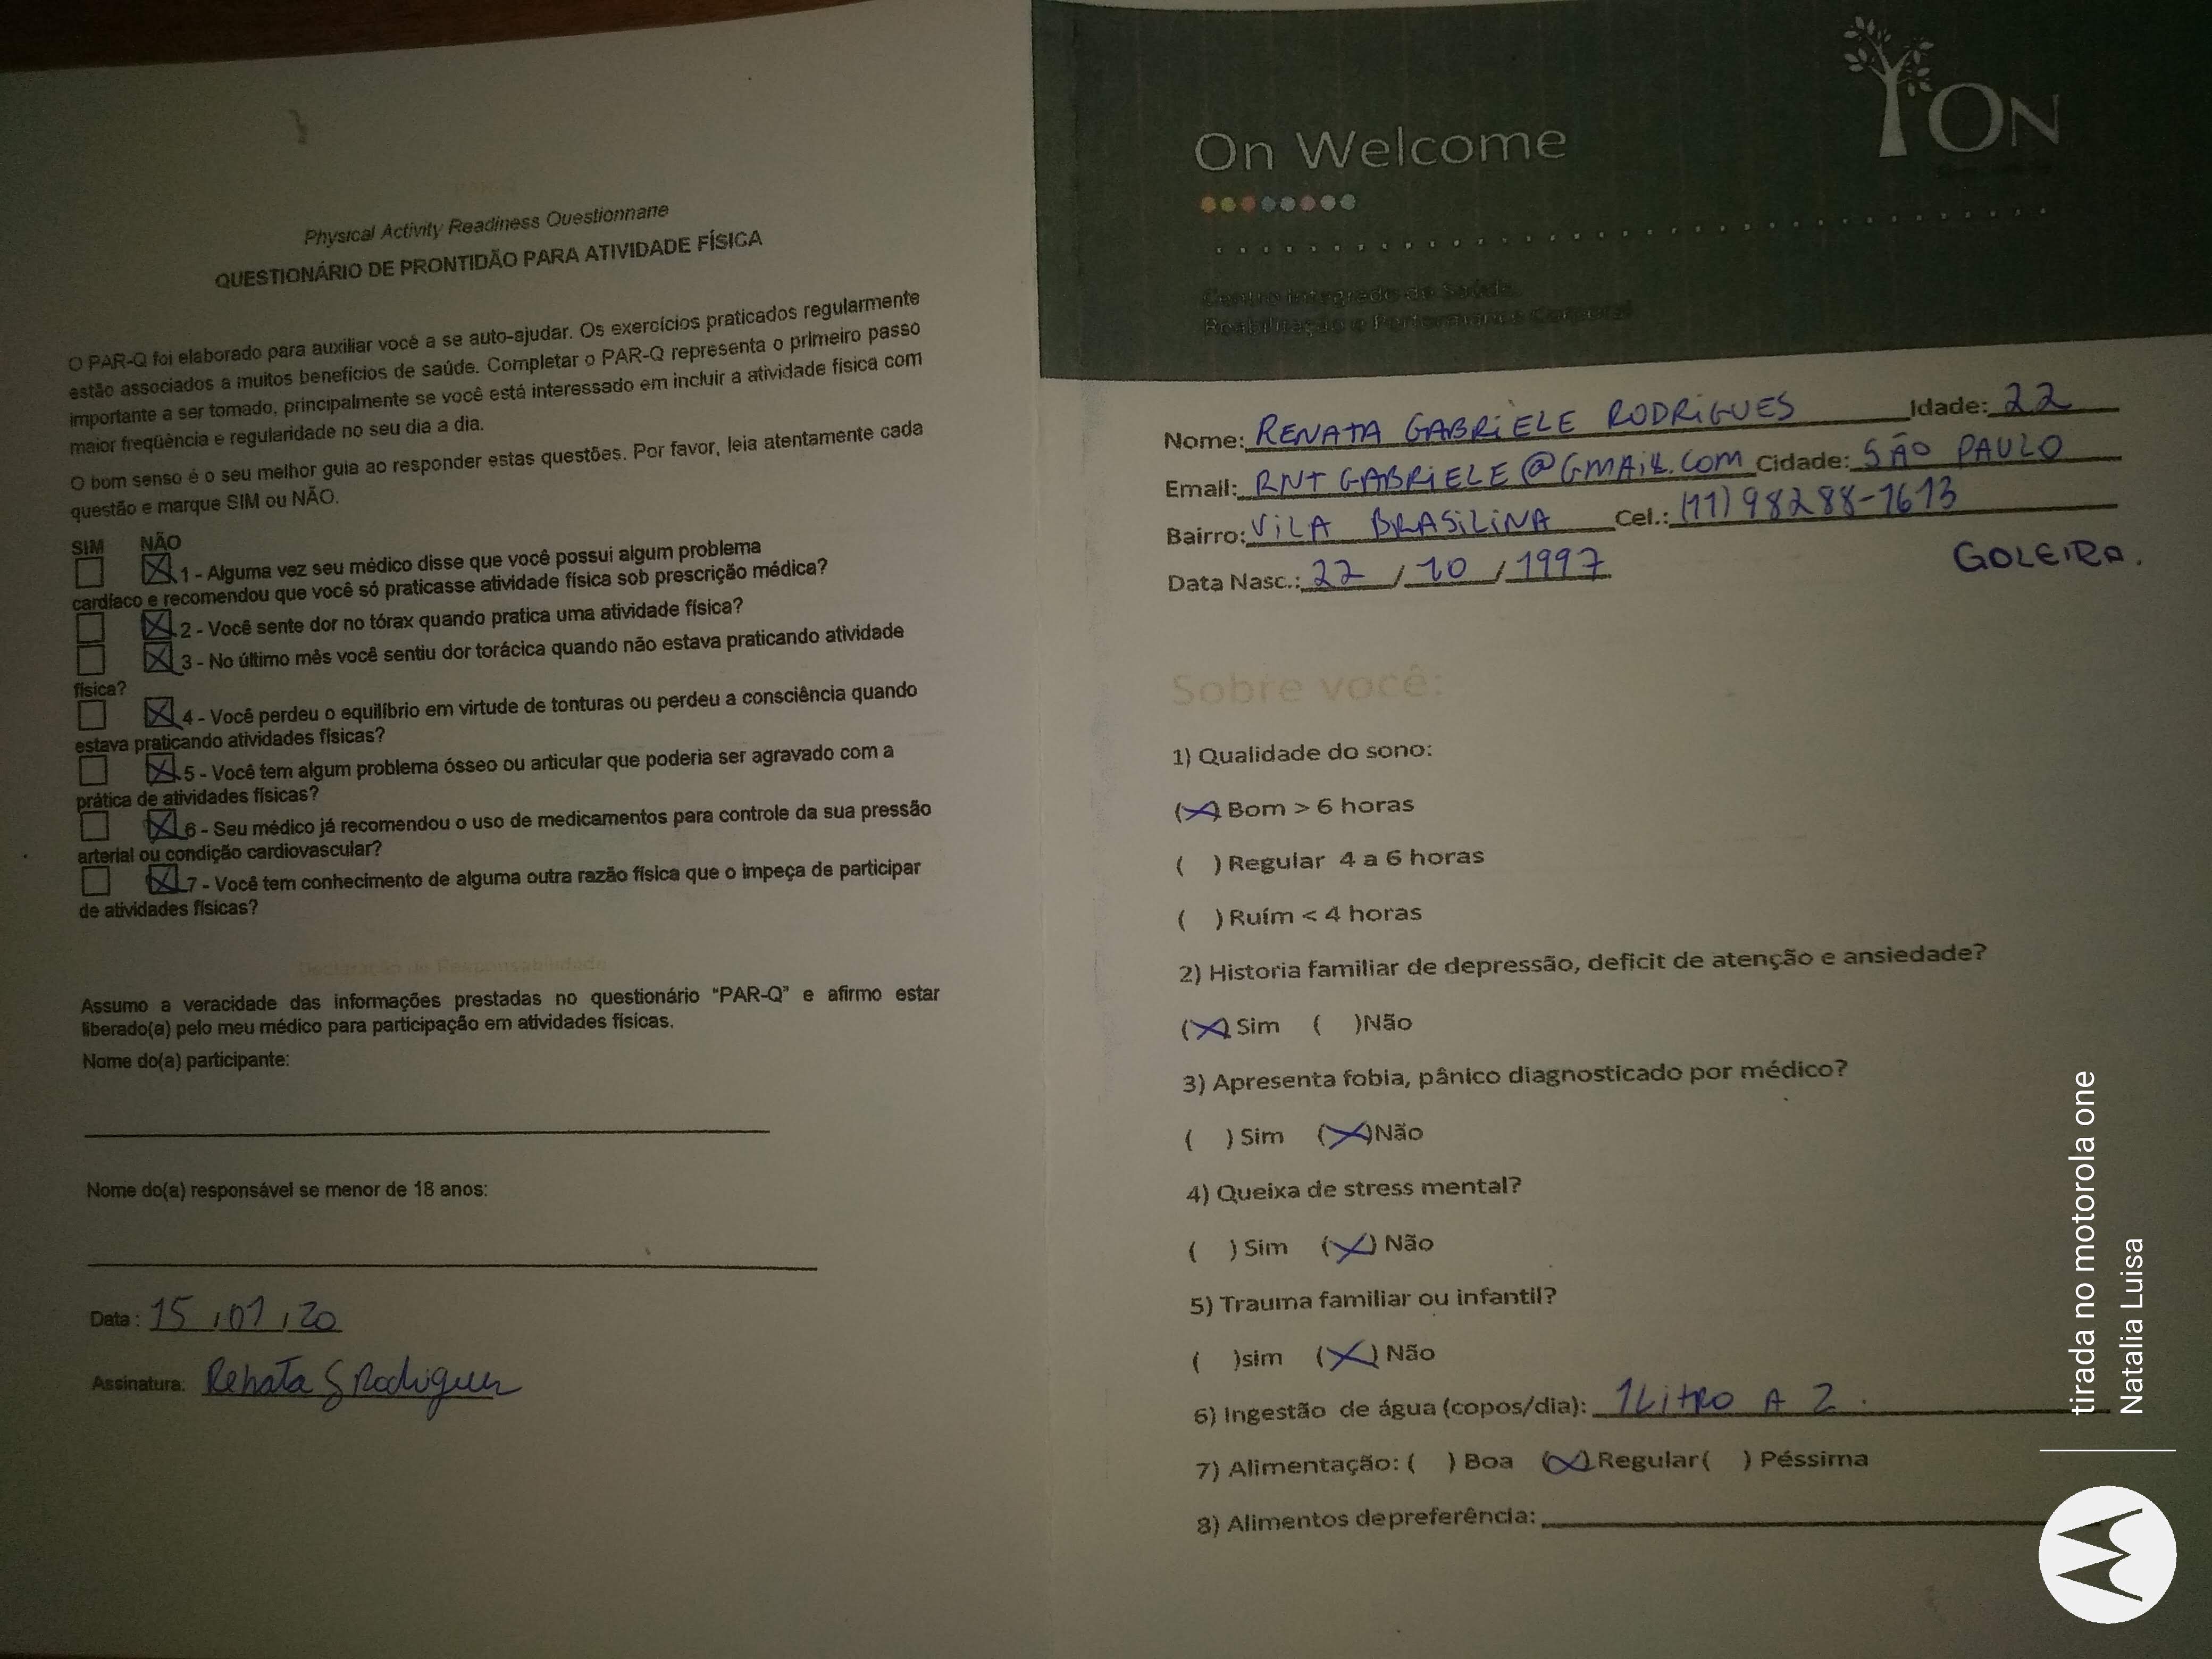 Physical Activity Readiness Questionnaire
QUESTIONÁRIO DE PRONTIDÃO PARA ATIVIDADE FÍSICA
O PAR-Q foi elaborado para auxiliar você a se auto-ajudar. Os exercícios praticados regularmente
estão associados a muitos benefícios de saúde. Completar o PAR-Q representa o primeiro passo
importante a ser tomado, principalmente se você está interessado em incluir a atividade física com
maior freqüência e regularidade no seu dia a dia.
O bom senso é o seu melhor guia ao responder estas questões. Por favor, leia atentamente cada
questão e marque SIM ou NÃO.
SIM NÃO
☐ ☒ 1 - Alguma vez seu médico disse que você possui algum problema
cardíaco e recomendou que você só praticasse atividade física sob prescrição médica?
☐ ☒ 2 - Você sente dor no tórax quando pratica uma atividade física?
☐ ☒ 3 - No último mês você sentiu dor torácica quando não estava praticando atividade
física?
☐ ☒ 4 - Você perdeu o equilíbrio em virtude de tonturas ou perdeu a consciência quando
estava praticando atividades físicas?
☐ ☒ 5 - Você tem algum problema ósseo ou articular que poderia ser agravado com a
prática de atividades físicas?
☐ ☒ 6 - Seu médico já recomendou o uso de medicamentos para controle da sua pressão
arterial ou condição cardiovascular?
☐ ☒ 7 - Você tem conhecimento de alguma outra razão física que o impeça de participar
de atividades físicas?
Assumo a veracidade das informações prestadas no questionário "PAR-Q" e afirmo estar
liberado(a) pelo meu médico para participação em atividades físicas.
Nome do(a) participante:
Nome do(a) responsável se menor de 18 anos:
Data: 15 / 01 / 20
Assinatura: Renata G Rodrigues
On Welcome
ON
Nome: RENATA GABRIELE RODRIGUES Idade: 22
Email: RNTGABRIELE@GMAIL.COM Cidade: SÃO PAULO
Bairro: VILA BRASILINA Cel.: (11) 98288-1613
Data Nasc.: 22 / 10 / 1997
GOLEIRA.
Sobre você:
1) Qualidade do sono:
(X) Bom > 6 horas
( ) Regular 4 a 6 horas
( ) Ruím < 4 horas
2) Historia familiar de depressão, deficit de atenção e ansiedade?
(X) Sim ( )Não
3) Apresenta fobia, pânico diagnosticado por médico?
( ) Sim (X)Não
4) Queixa de stress mental?
( ) Sim (X) Não
5) Trauma familiar ou infantil?
( )sim (X) Não
6) Ingestão de água (copos/dia): 1 Litro A 2.
7) Alimentação: ( ) Boa (X) Regular( ) Péssima
8) Alimentos de preferência:
tirada no motorola one
Natalia Luisa